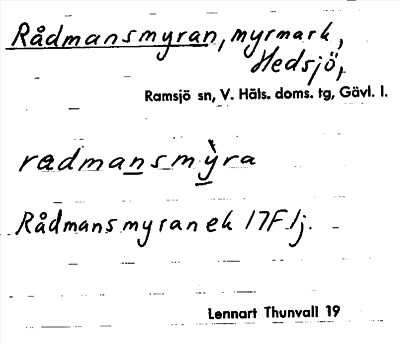 Rådmansmyran, myrmark,
Hedsjö,
Ramsjö sn, V. Häls. doms. tg, Gävl. l.
radmansmỳra
Rådmansmyran ek 17F1j.
Lennart Thunvall 19